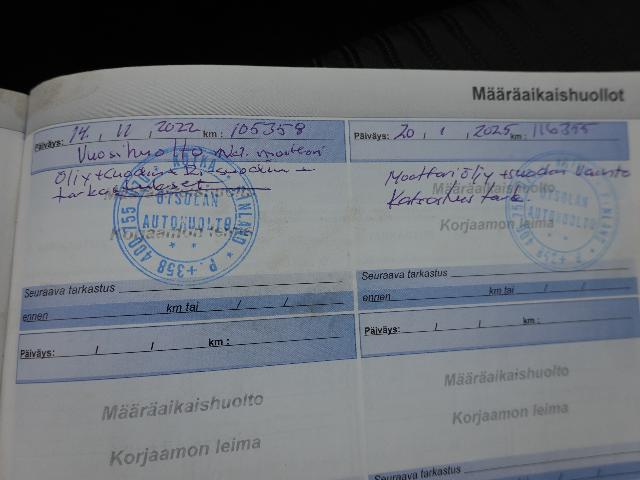 Määräaikaishuollot
Päiväys: 14. 11 , 2022 km : 105358
Vuosihuolto
Öljy + suodin
tarkastukset
KOTKA FINLAND
OTSOLAN
AUTOHUOLTO
P. +358 400755
Korjaamon leima
Seuraava tarkastus
ennen km tai / /
Päiväys: 20 , 1 , 2025 km : 116355
Moottoriöljy + suodin vaihto
Katsastus tark.
OTSOLAN
AUTOHUOLTO
FINLAND
Korjaamon leima
Seuraava tarkastus
ennen km tai / /
Päiväys: / / km :
Määräaikaishuolto
Korjaamon leima
Päiväys: / / km :
Määräaikaishuolto
Korjaamon leima
Seuraava tarkastus